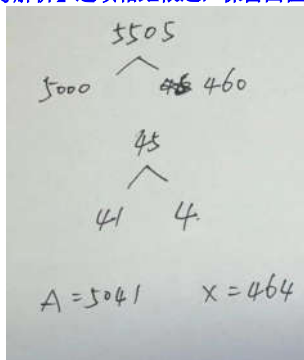 5505
5000 460
45
41 4.
A = 5041 X = 464